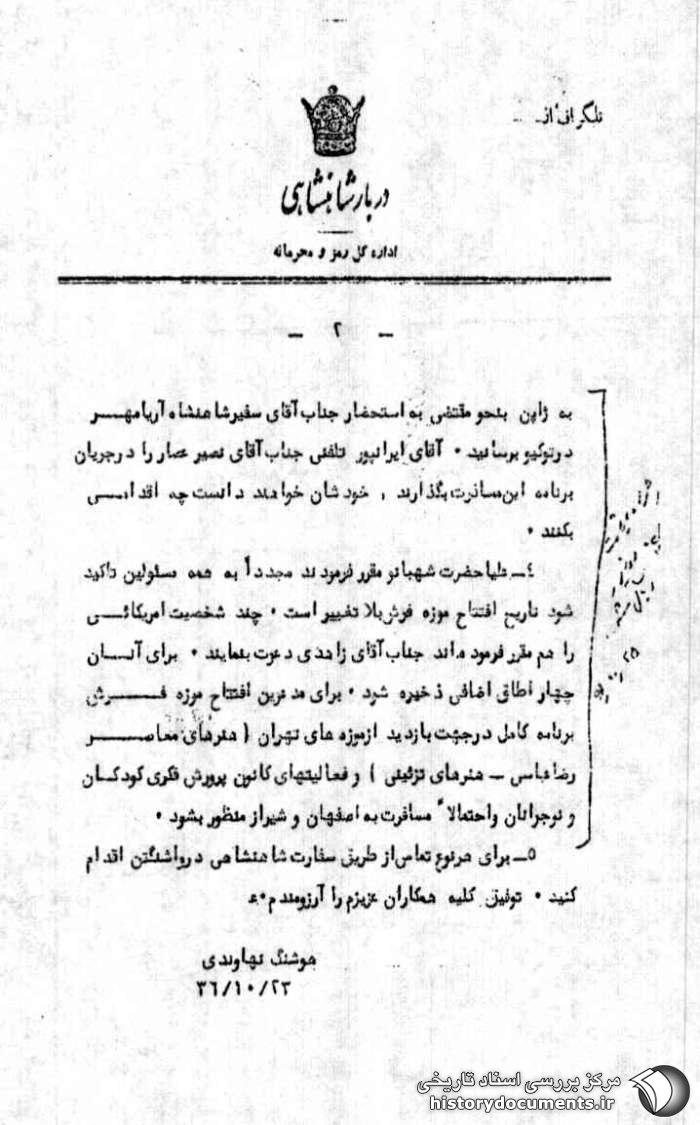 تلگراف از
دربار شاهنشاهی
اداره کل رمز و محرمانه
— ۲ —
به ژاپن بنحو مقتضی به استحضار جناب آقای سفیر شاهنشاه آریامهر
درتوکیو برسانید ۰ آقای ایرانپور تلفنی جناب آقای نصیر عصار را درجریان
برنامه این مسافرت بگذارند , خودشان خواهند دانست چه اقدامی
بکنند ۰
۴ـ علیاحضرت شهبانو مقرر فرمودند مجدداً به همه مسئولین تاکید
شود تاریخ افتتاح موزه فرش بلا تغییر است ۰ چند شخصیت امریکائی
را هم مقرر فرموده اند جناب آقای زاهدی دعوت بنمایند ۰ برای آنان
چهار اطاق اضافی ذخیره شود ۰ برای مدعوین افتتاح موزه فرش
برنامه کامل درجهت بازدید ازموزه های تهران ( هنرهای معاصر
رضا عباسی ـ هنرهای تزئینی ) و فعالیتهای کانون پرورش فکری کودکان
و نوجوانان واحتمالا" مسافرت به اصفهان و شیراز منظور بشود ۰
۵ـ برای هرنوع تماس از طریق سفارت شاهنشاهی درواشنگتن اقدام
کنید ۰ توفیق کلیه همکاران عزیزم را آرزومندم ۰
هوشنگ نهاوندی
۳۶/۱۰/۲۳
مرکز بررسی اسناد تاریخی
historydocuments.ir